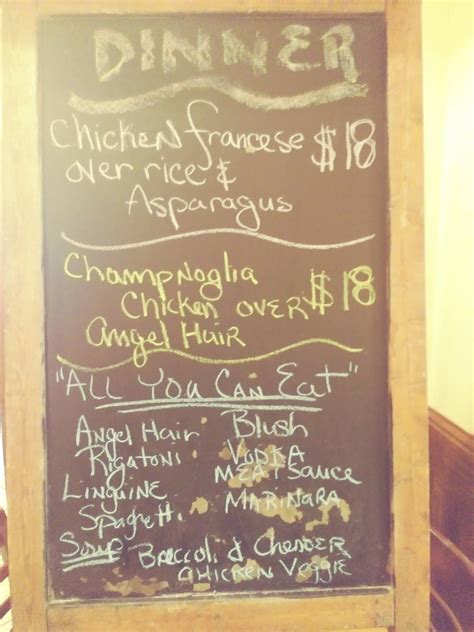 DINNER
Chicken francese $18
over rice &
Asparagus
Champnoglia
Chicken over $18
Angel Hair
"All You Can Eat"
Angel Hair Blush
Rigatoni Vodka
Linguine Meat Sauce
Spaghetti Marinara
Soup Broccoli & Chender
Chicken Veggie